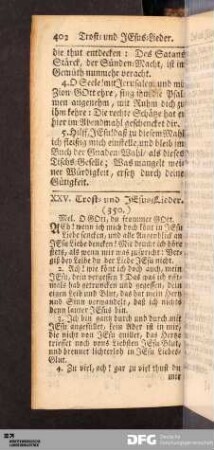 402 Trost- und JEsus-Lieder.
die thut entdecken: Des Satans
Stärck, der Sünden-Macht, ist in
Gemüth nunmehr veracht.
4. O Seele! mit Jerusalem, und mit
Zion GOtt ehre, sing ihm die Psal-
men angenehm, mit Ruhm dich zu
ihm kehre: Die rechte Schätz hat er
hier im Abendmahl geschencket dir.
5. Hilff, JEsu! daß zu diesem Mahl
ich fleißig mich einstelle, und bleib im
Buch der Gnaden-Wahl als dieses
Tischs-Geselle; Was mangelt mei-
ner Würdigkeit, ersetz durch deine
Gütigkeit.
XXV. Trost- und JEsus-Lieder.
(350.)
Mel. O GOtt, du frommer GOtt.
Ach! wenn ich mich doch könt in JEsu
Liebe sencken, und alle Augenblick an
JEsu Liebe dencken! Mir deucht ich höre
stets, als wenn mir was zuspricht: Ver-
giß bey Leibe du der Liebe JEsu nicht.
2. Ach! wie könt ich doch auch, mein
JEsu, dein vergessen? Das gas ich nie-
mals hab getruncken und gegessen, dein
eigen Leib und Blut, das hat mein Hertz
und Sinn verwandele, daß ich nichts
denn JEsu bin.
3. Ich bin gantz durch und durch mit
JEsu angefüllet, kein Ader ist in mir,
die nicht von JEsu quillet, das Hertze
trieffet noch vons Liebsten JEsu Blut,
und brennet lichterloh in JEsu Liebes-
Glut.
4. Zu viel, ach! gar zu viel thust du
mir
DFG Deutsche
Forschungsgemeinschaft